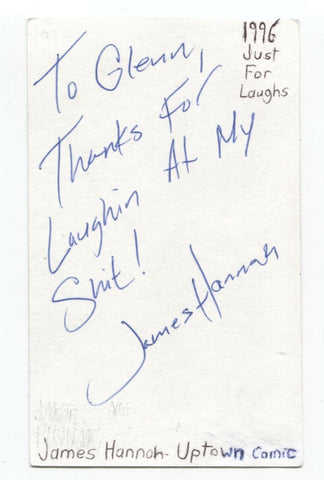 1996
Just
For
Laughs
To Glenn,
Thanks For
Laughin At My
Shit!
James Hannah
James Hannah- Uptown Comic